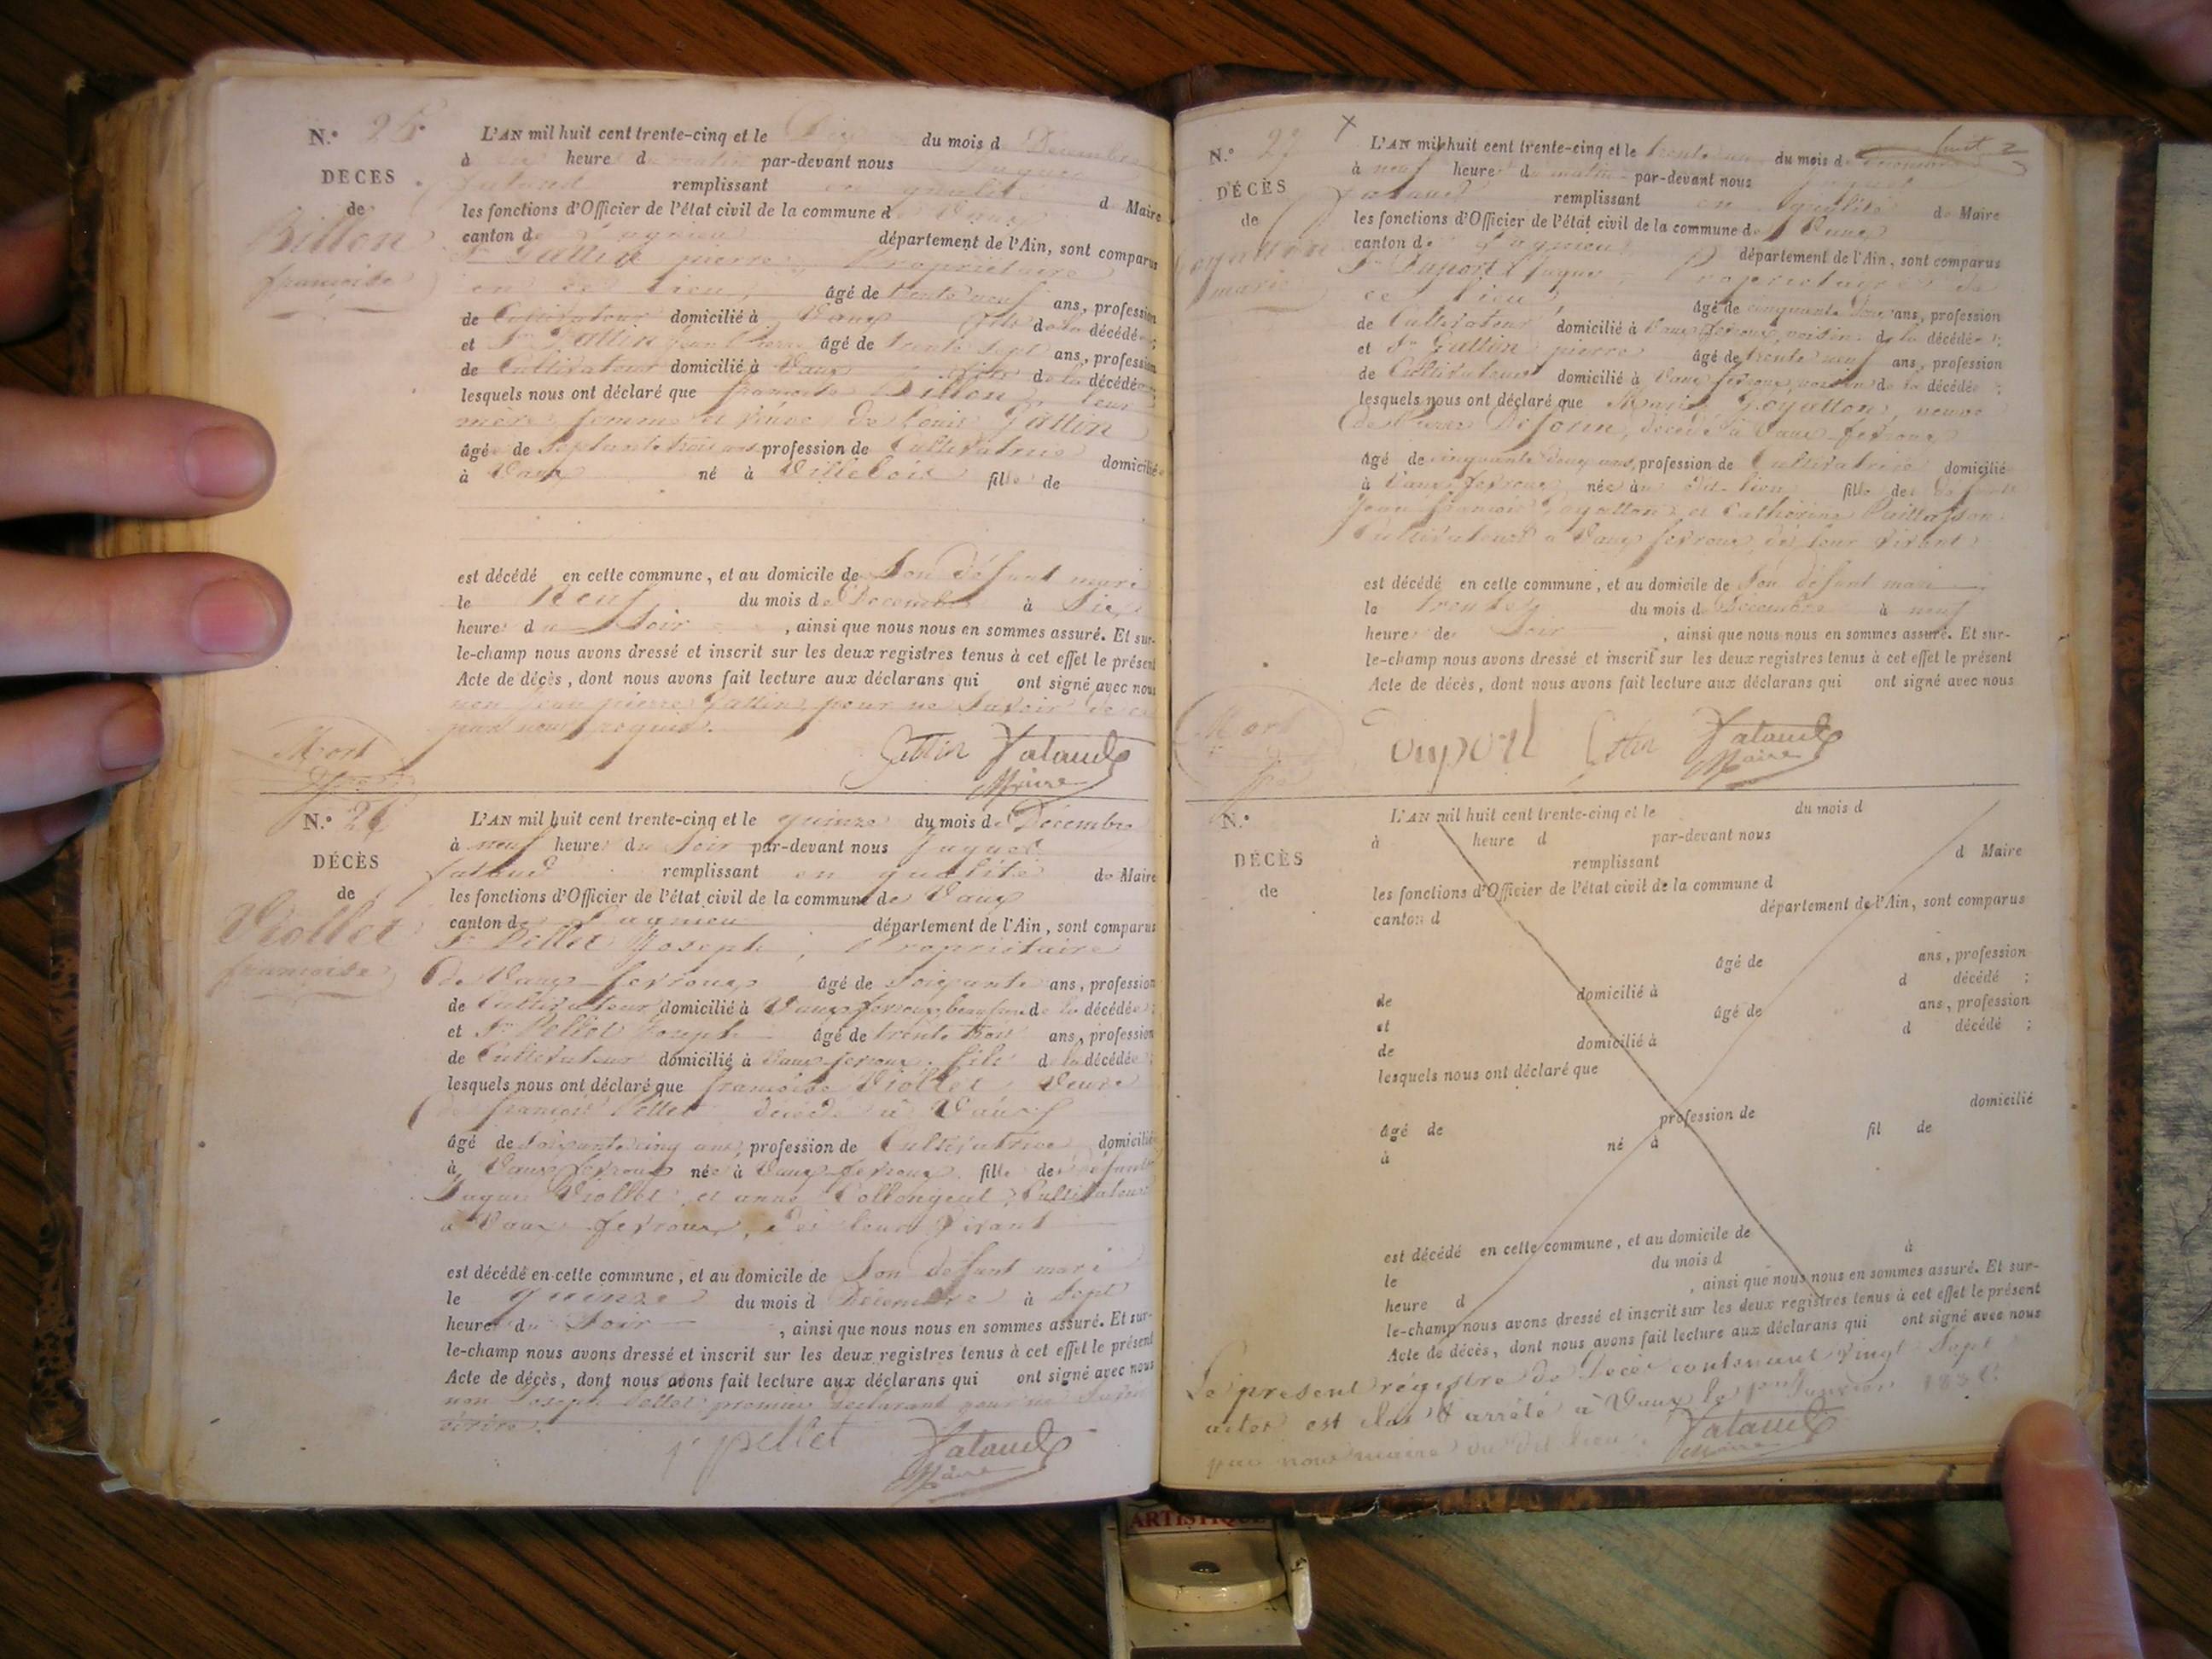 N.° 25
DÉCÈS
de
Billon
françoise
L'AN mil huit cent trente-cinq et le Dix du mois d Décembre
à heure d u matin par-devant nous Jaques
fataud remplissant en qualité d Maire
les fonctions d'Officier de l'état civil de la commune d Vaux
canton de Lagnieu département de l'Ain, sont comparus
Sr Gattin pierre, Propriétaire
en ce lieu, âgé de trente neuf ans, profession
de Cultivateur domicilié à Vaux fils de la décédée ;
et Sr Gattin Jean Pierre âgé de trente sept ans, profession
de Cultivateur domicilié à Vaux fils de la décédée ;
lesquels nous ont déclaré que françoise Billon, leur
mère, femme et veuve de Louis Gattin
âgé de septante trois ans profession de Cultivatrice domicilié
à Vaux né à Villebois fille de
est décédé en cette commune, et au domicile de Son défunt mari
le Neuf du mois de Décembre à
heure du Soir , ainsi que nous nous en sommes assuré. Et sur-
le-champ nous avons dressé et inscrit sur les deux registres tenus à cet effet le présent
Acte de décès, dont nous avons fait lecture aux déclarans qui ont signé avec nous
non Jean pierre Gattin, pour ne Savoir de ce
par nous requis.
Mort
Gattin fataud
Maire
N.° 26
DÉCÈS
de
Viollet
françoise
L'AN mil huit cent trente-cinq et le quinze du mois de Décembre
à neuf heures du Soir par-devant nous Jaques
fataud remplissant en qualité de Maire
les fonctions d'Officier de l'état civil de la commune de Vaux
canton de Lagnieu département de l'Ain, sont comparus
Sr Pellet Joseph, Propriétaire
de Vaux fevroux âgé de Soixante ans, profession
de Cultivateur domicilié à Vaux fevroux beau frère de la décédée ;
et Sr Pellet Joseph âgé de trente trois ans, profession
de Cultivateur domicilié à Vaux fevroux fils de la décédée ;
lesquels nous ont déclaré que françoise Viollet Veuve
de françois Pellet décédé à Vaux f
âgé de Soixante cinq ans, profession de Cultivatrice domicilié
à Vaux fevroux née à Vaux fevroux fille de défunts
Jaques Viollet et anne Collongeat, Cultivateurs
à Vaux fevroux, dès leur Vivant
est décédé en cette commune, et au domicile de Son défunt mari
le quinze du mois d Décembre à Sept
heures du Soir , ainsi que nous nous en sommes assuré. Et sur-
le-champ nous avons dressé et inscrit sur les deux registres tenus à cet effet le présent
Acte de décès, dont nous avons fait lecture aux déclarans qui ont signé avec nous
non Joseph Pellet premier déclarant pour ne Savoir
écrire.
pellet fataud
Maire
N.° 27
DÉCÈS
de
Goyatton
marie
L'AN mil huit cent trente-cinq et le trente un du mois de Décembre
à neuf heures du matin par-devant nous Jaques
fataud remplissant en qualité de Maire
les fonctions d'Officier de l'état civil de la commune de Vaux
canton de Lagnieu département de l'Ain, sont comparus
Sr Duport Jaques, Propriétaire de
ce lieu âgé de cinquante ans, profession
de Cultivateur domicilié à Vaux fevroux, voisin de la décédée ;
et Sr Gattin pierre âgé de trente neuf ans, profession
de Cultivateur domicilié à Vaux fevroux, voisin de la décédée ;
lesquels nous ont déclaré que Marie Goyatton, veuve
de Pierre , décédé à Vaux fevroux
âgé de cinquante deux ans, profession de Cultivatrice domicilié
à Vaux fevroux née au dit lieu fille de défunts
Jean françois Goyatton et Catherine Paillasson
Cultivateurs à Vaux fevroux, dès leur vivant
est décédé en cette commune, et au domicile de Son défunt mari
le trente du mois de Décembre à neuf
heures de Soir , ainsi que nous nous en sommes assuré. Et sur-
le-champ nous avons dressé et inscrit sur les deux registres tenus à cet effet le présent
Acte de décès, dont nous avons fait lecture aux déclarans qui ont signé avec nous
Mort
Duport Gattin fataud
Maire
N.°
DÉCÈS
de
L'AN mil huit cent trente-cinq et le du mois d
à heure d par-devant nous
remplissant d Maire
les fonctions d'Officier de l'état civil de la commune d
canton d département de l'Ain, sont comparus
âgé de ans, profession
de domicilié à d décédé ;
et âgé de ans, profession
de domicilié à d décédé ;
lesquels nous ont déclaré que
âgé de profession de domicilié
à né à fil de
est décédé en cette commune, et au domicile de
le du mois d à
heure d , ainsi que nous nous en sommes assuré. Et sur-
le-champ nous avons dressé et inscrit sur les deux registres tenus à cet effet le présent
Acte de décès, dont nous avons fait lecture aux déclarans qui ont signé avec nous
Le present régistre de Décès contenant vingt Sept
actes est clos & arrêté à Vaux le Janvier
par nous maire du dit lieu. fataud
Maire
ARTISTIQUE